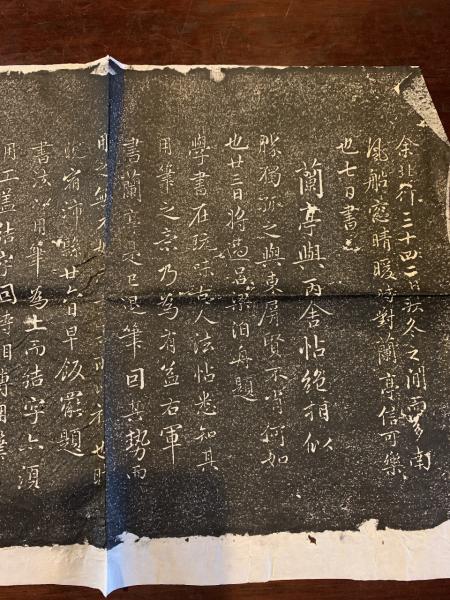 余北行三十二日秋冬之間而多南
風船窓晴暖時對蘭亭信可樂
也七日書
蘭亭與丙舍帖絶相似
獨孤之與東屏賢不肖何如
也廿三日將過呂梁泊舟題
學書在玩味古人法帖悉知其
用筆之意乃為有益右軍
書蘭亭是已退筆因其勢而
宿沛縣廿六日早飯罷題
書法以用筆為上而結字亦須
用工蓋結字因時相傳用筆